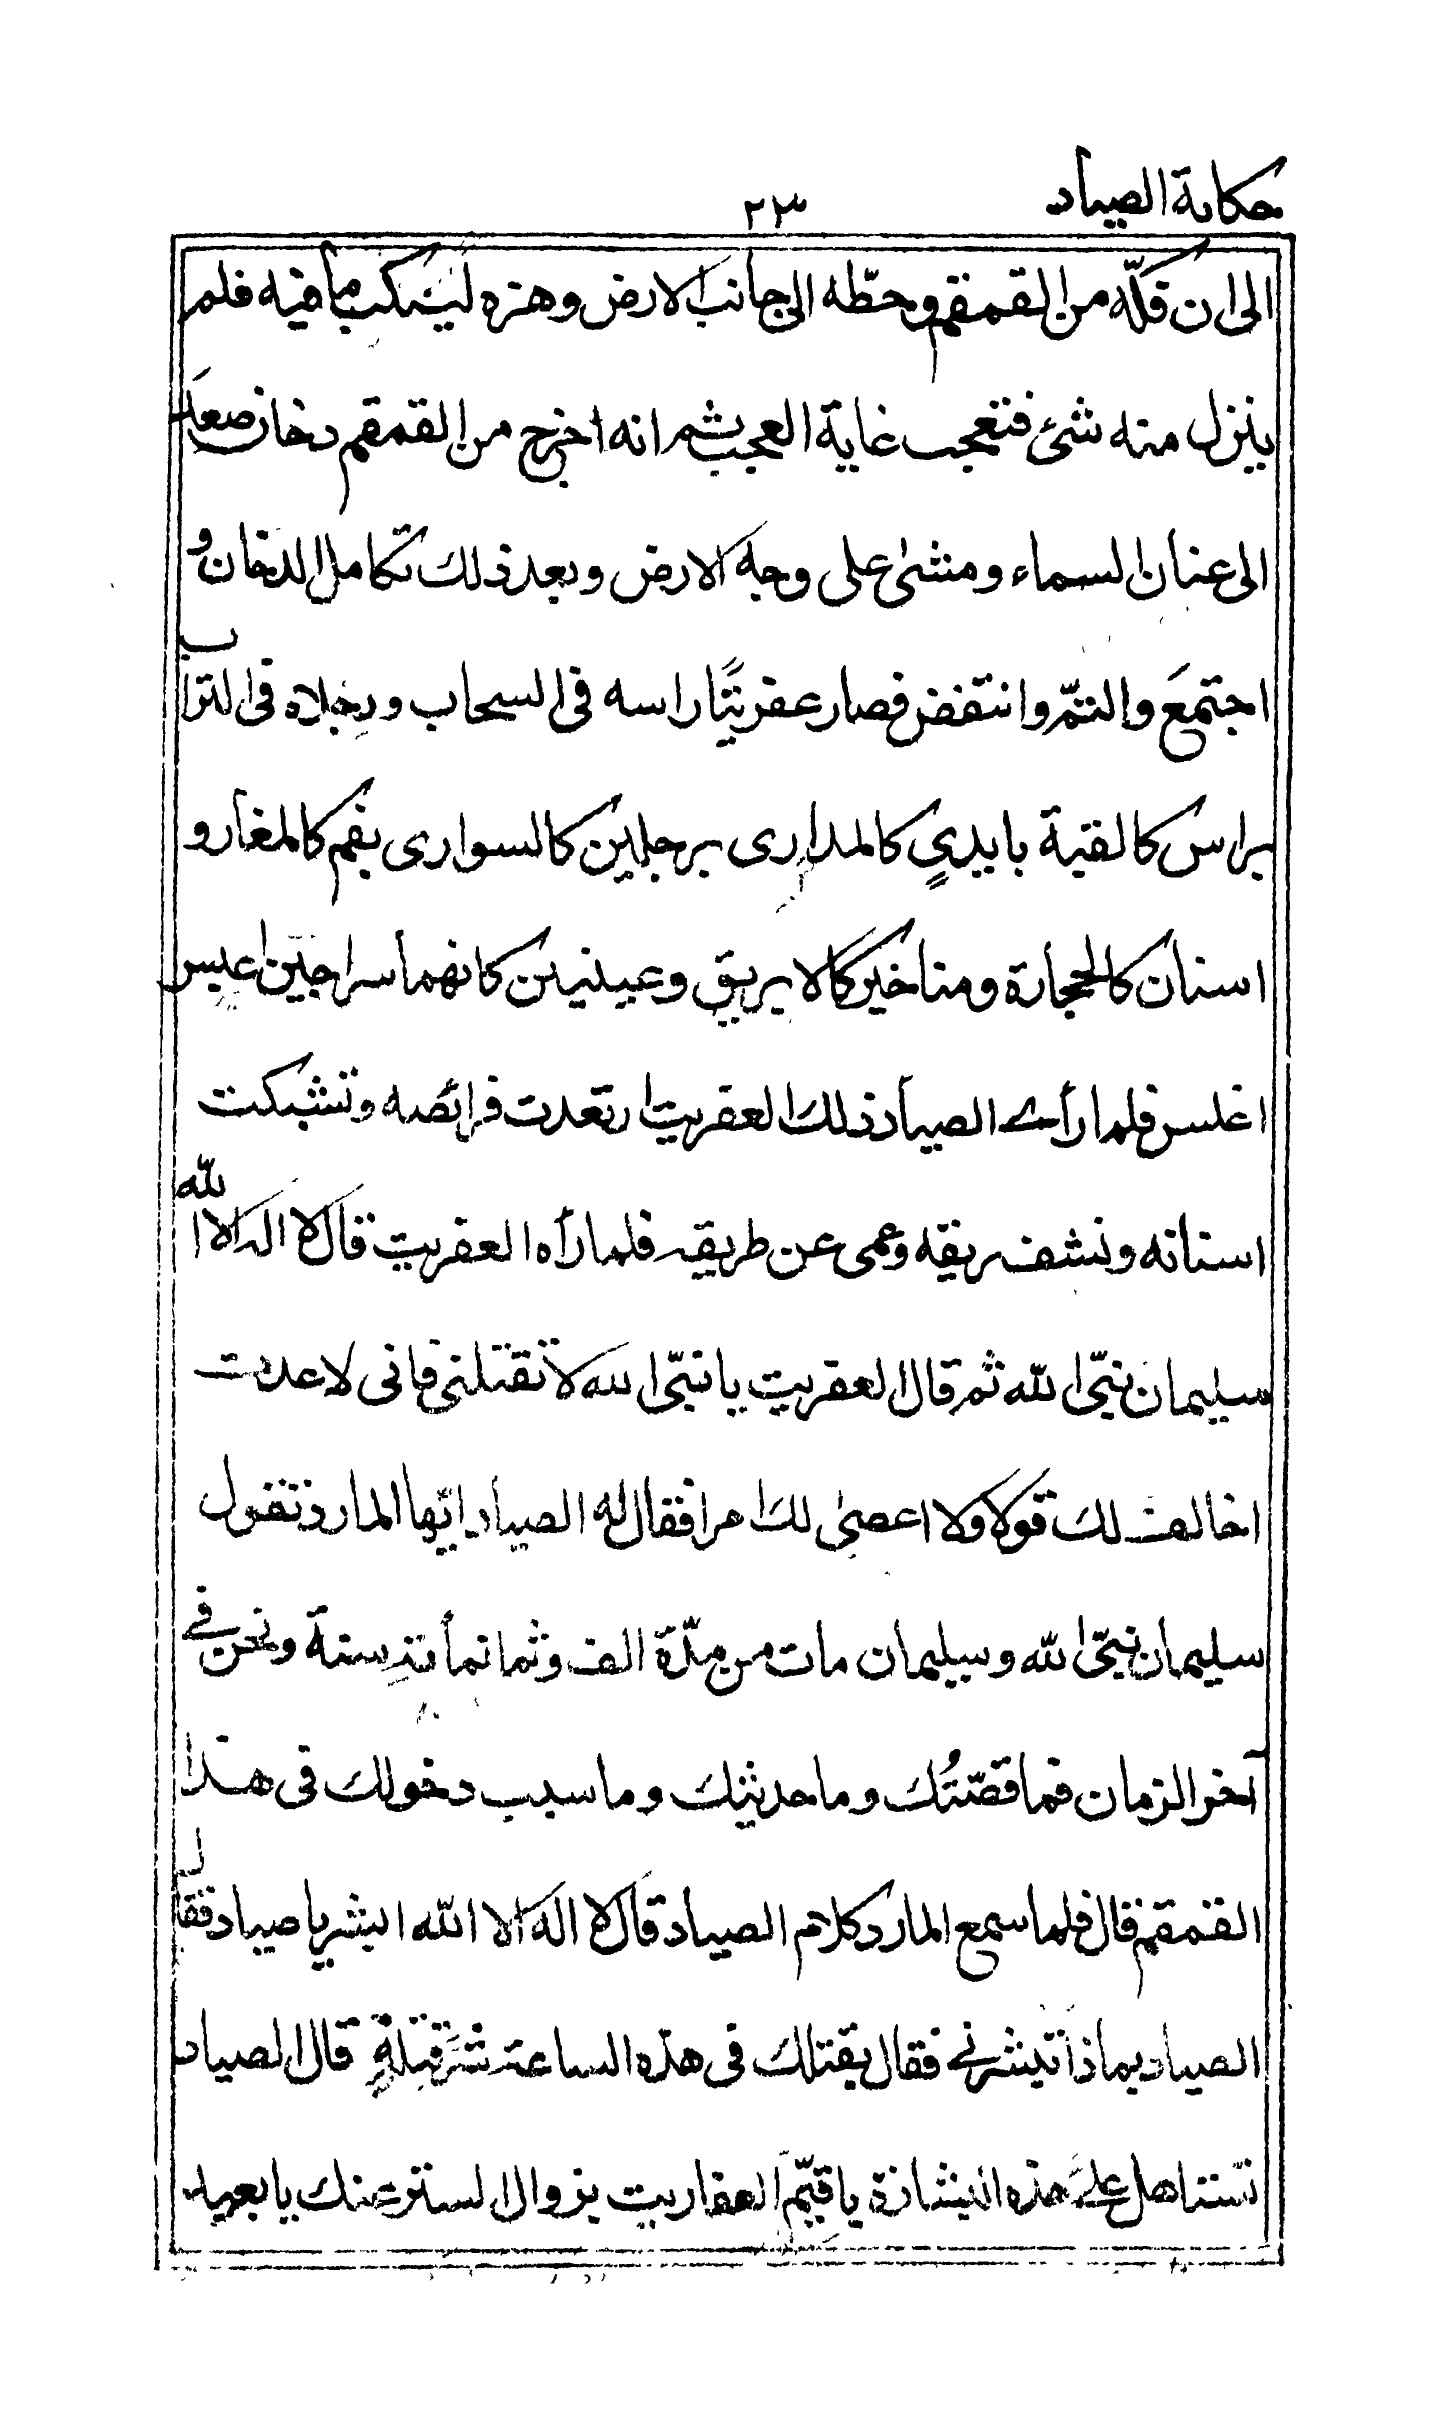 حكاية الصياد
٢٣
الى ان فكّه من القمقم وحطّه الى جانب الارض وهزه لينكب ما فيه فلم
ينزل منه شئ فتعجب غاية العجب ثم انه اخرج من القمقم دخان صعد
الى عنان السماء ومشى على وجه الارض وبعد ذلك تكامل الدخان و
اجتمعَ والتمّ وانتفض فصار عفريتًا راسه فى السحاب ورجلاه فى التراب
براس كالقبة بايديٍ كالمدارى برجلين كالسوارى بفم كالمغار و
اسنان كالحجارة ومناخير كالابريق وعينين كانهما سراجين اعبس
اغلس فلما رأى الصياد ذلك العفريت ارتعدت فرائصه وتشبكت
اسنانه ونشف ريقه وعمى عن طريقه فلما رأه العفريت قال لا اله الا الله
سليمان نبىّ الله ثم قال العفريت يا نبىّ الله لا تقتلنى فانى لا عدت
اخالف لك قولا ولا اعصى لك امرا فقال له الصياد ايّها المارد تقول
سليمان نبىّ الله وسليمان مات من مدّة الف وثمانمأئة سنة ونحن فى
آخر الزمان فما قصّتُك وما حديثك وما سبب دخولك فى هذا
القمقم قال فلما سمع المارد كلام الصياد قال لا اله الا الله ابشر يا صياد فقال
الصياد بماذا تبشرنى فقال بقتلك فى هذه الساعة شرَّ قتلةٍ قال الصياد
تستاهل علىَّ هذه البشارة يا قيّم العفاريت بزوال الستر عنك يا بعيد